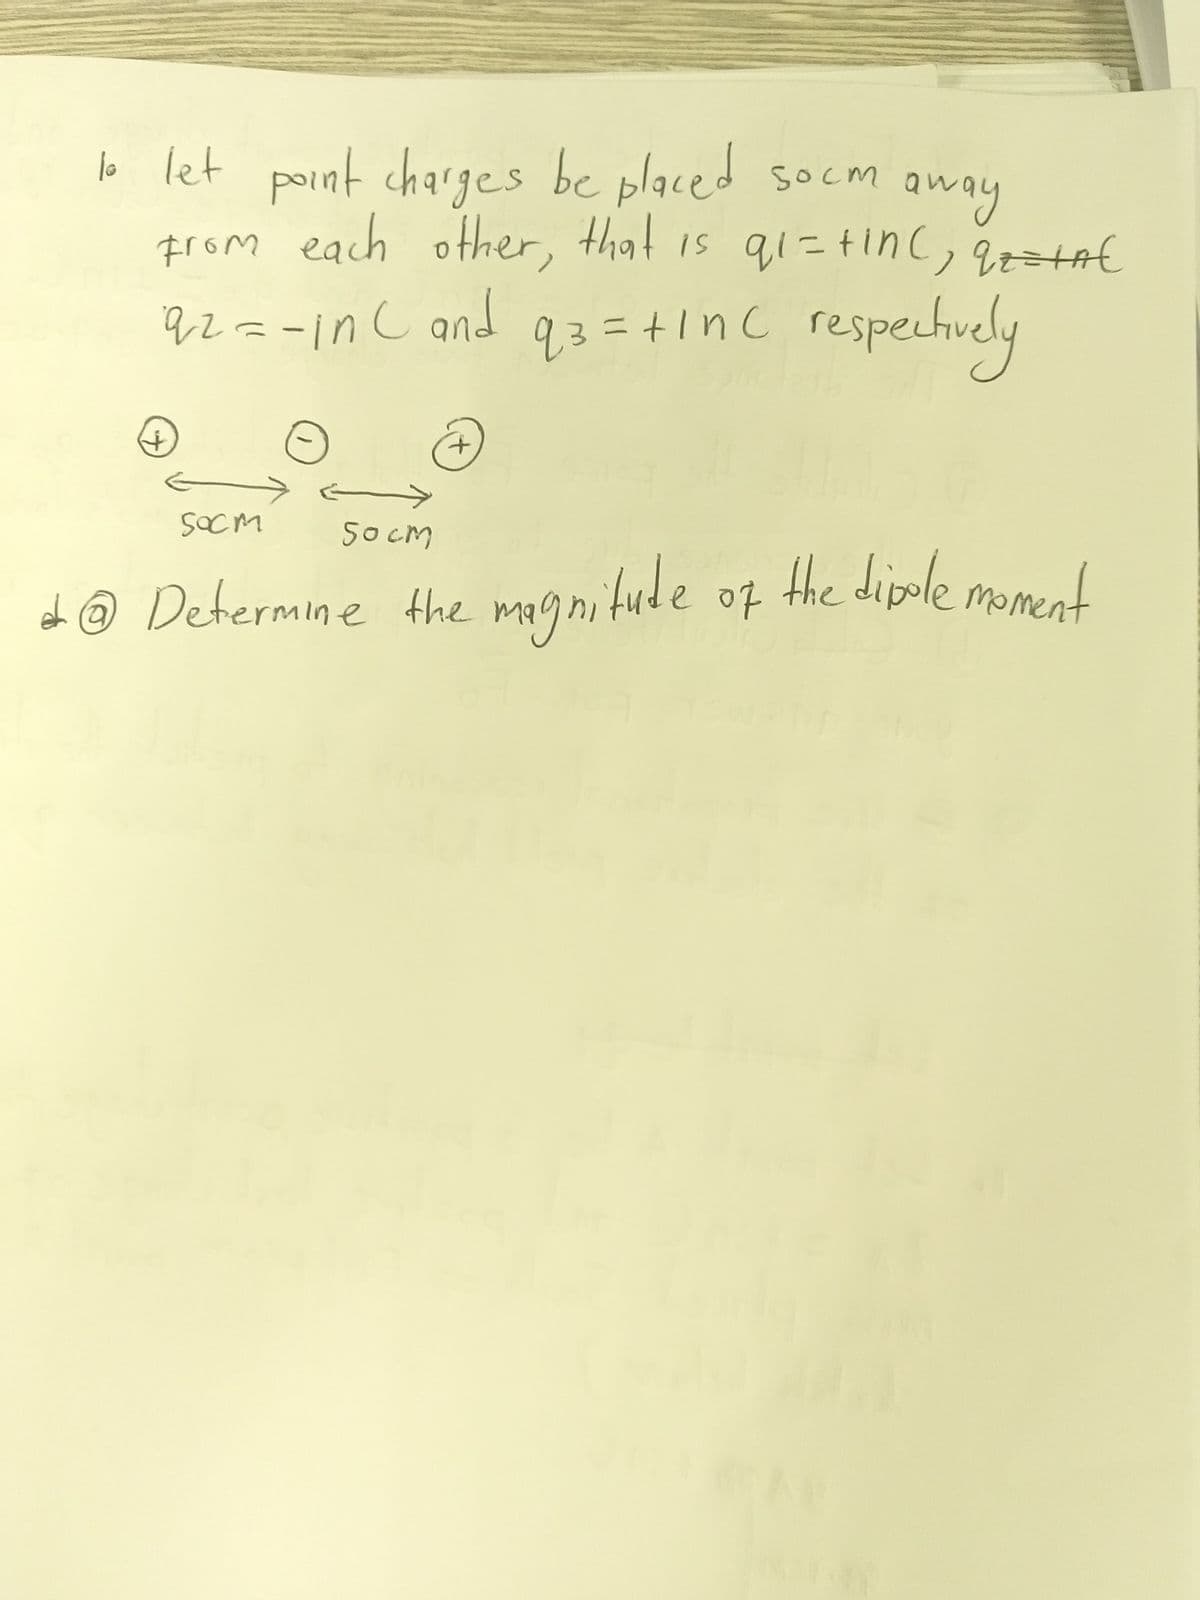 1. let point charges be placed 50cm away
from each other, that is q1 = +1nC, q2=+1nC
q2 = -1nC and q3 = +1nC respectively
+ - +
50cm 50cm
d @ Determine the magnitude of the dipole moment